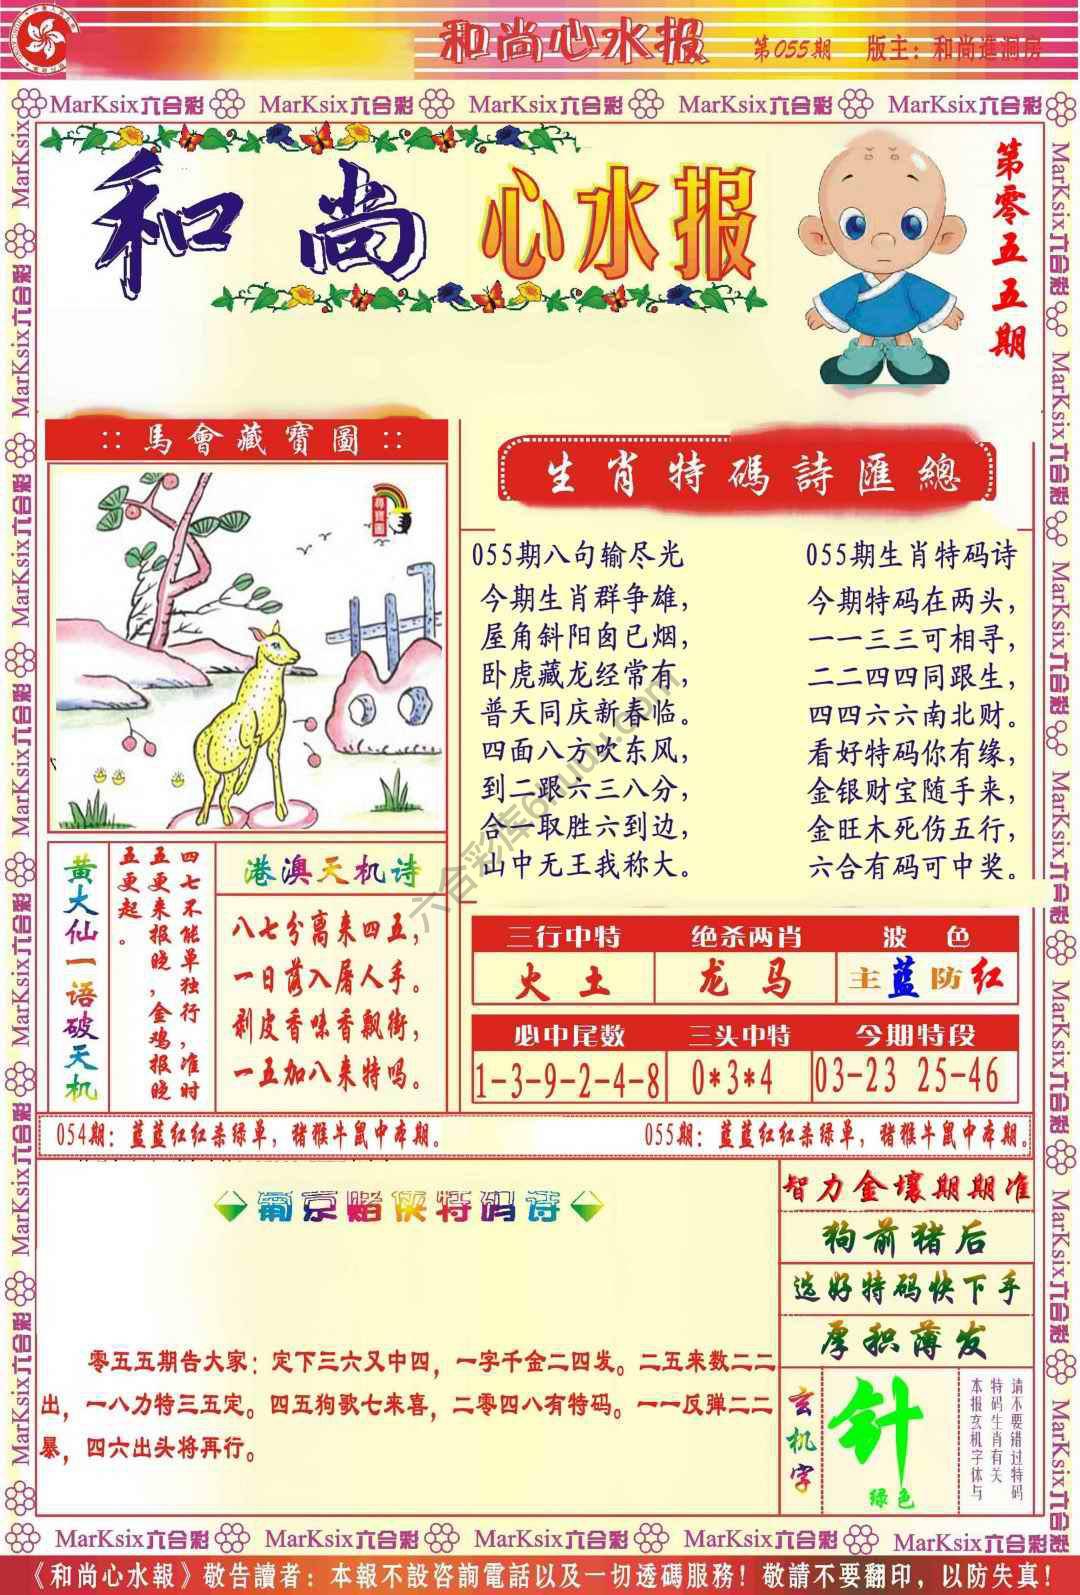 和尚心水报 第055期 版主：和尚進洞房
MarKsix六合彩 MarKsix六合彩 MarKsix六合彩 MarKsix六合彩 MarKsix六合彩
和尚 心水报
第零五五期
:: 馬會藏寶圖 ::
生肖特碼詩匯總
055期八句输尽光
今期生肖群争雄，
屋角斜阳囱已烟，
卧虎藏龙经常有，
普天同庆新春临。
四面八方吹东风，
到二跟六三八分，
合一取胜六到边，
山中无王我称大。
055期生肖特码诗
今期特码在两头，
一一三三可相寻，
二二四四同跟生，
四四六六南北财。
看好特码你有缘，
金银财宝随手来，
金旺木死伤五行，
六合有码可中奖。
黄大仙一语破天机
四七不能单独行，准时
五更来报晓，金鸡报晓
五更起。
港澳天机诗
八七分离来四五，
一日落入屠人手。
剥皮香味香飘街，
一五加八来特吗。
三行中特 绝杀两肖 波色
火土 龙马 主蓝防红
必中尾数 三头中特 今期特段
1-3-9-2-4-8 0*3*4 03-23 25-46
054期：蓝蓝红红杀绿单，猪猴牛鼠中本期。 055期：蓝蓝红红杀绿单，猪猴牛鼠中本期。
葡京赌侠特码诗
零五五期告大家：定下三六又中四，一字千金二四发。二五来数二二
出，一八力特三五定。四五狗歌七来喜，二零四八有特码。一一反弹二二
暴，四六出头将再行。
智力金壤期期准
狗前猪后
选好特码快下手
厚积薄发
玄机字
针
绿色
请不要错过特码
特码生肖有关
本报玄机字体与
六合彩库6hubu.com
MarKsix六合彩 MarKsix六合彩 MarKsix六合彩 MarKsix六合彩 MarKsix六合彩
《和尚心水報》敬告讀者：本報不設咨詢電話以及一切透碼服務！敬請不要翻印，以防失真！